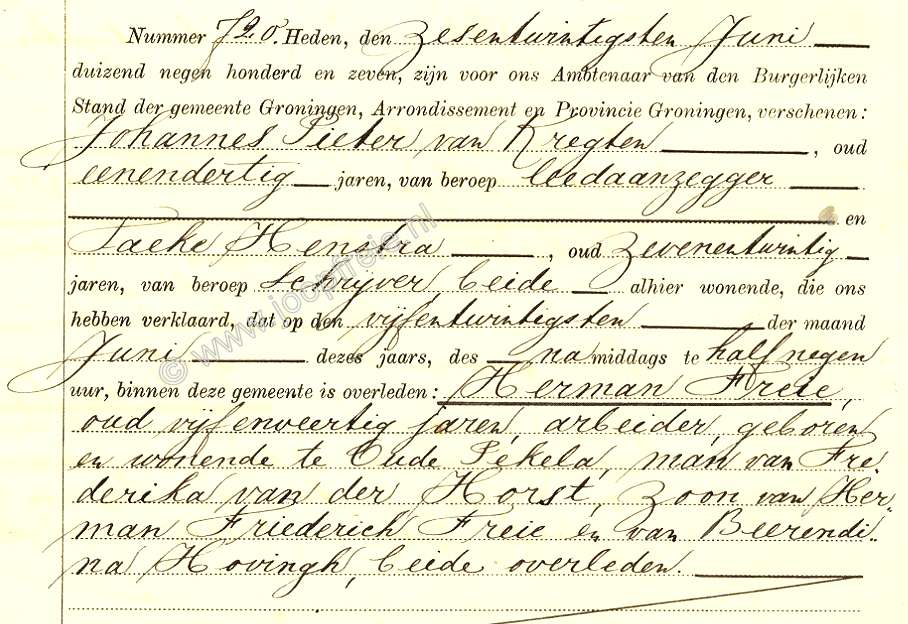 Nummer 720. Heden, den zesentwintigsten Juni
duizend negen honderd en zeven, zijn voor ons Ambtenaar van den Burgerlijken
Stand der gemeente Groningen, Arrondissement en Provincie Groningen, verschenen:
Johannes Pieter van Kregten, oud
eenendertig jaren, van beroep leedaanzegger
en
Taeke Henstra, oud zevenentwintig
jaren, van beroep schryver, beide alhier wonende, die ons
hebben verklaard, dat op den vijfentwintigsten der maand
Juni dezes jaars, des na middags te half negen
uur, binnen deze gemeente is overleden: Herman Freie,
oud vijfenveertig jaren, arbeider, geboren
en wonende te Oude Pekela, man van Fre„
derika van der Horst, zoon van Her„
man Friederich Freie en van Beerendi„
na Hovingh, beide overleden.
© www.joopfreie.nl